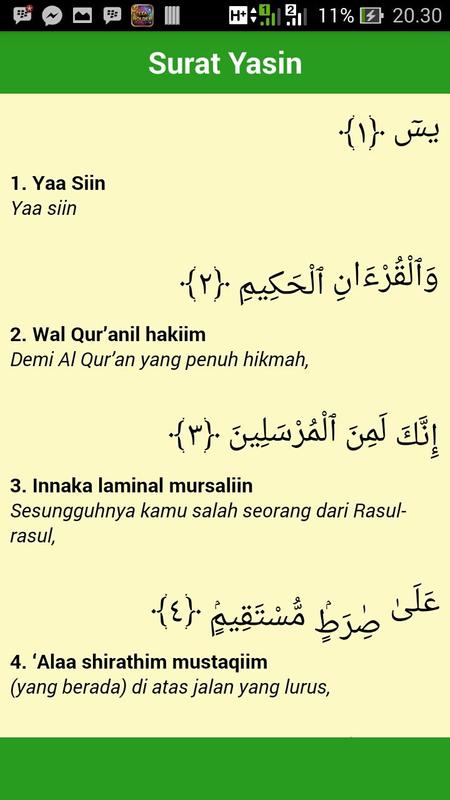 11% 20.30
Surat Yasin
يسٓ ﴿١﴾
1. Yaa Siin
Yaa siin
وَٱلْقُرْءَانِ ٱلْحَكِيمِ ﴿٢﴾
2. Wal Qur’anil hakiim
Demi Al Qur’an yang penuh hikmah,
إِنَّكَ لَمِنَ ٱلْمُرْسَلِينَ ﴿٣﴾
3. Innaka laminal mursaliin
Sesungguhnya kamu salah seorang dari Rasul-
rasul,
عَلَىٰ صِرَٰطٍۢ مُّسْتَقِيمٍۢ ﴿٤﴾
4. ‘Alaa shirathim mustaqiim
(yang berada) di atas jalan yang lurus,